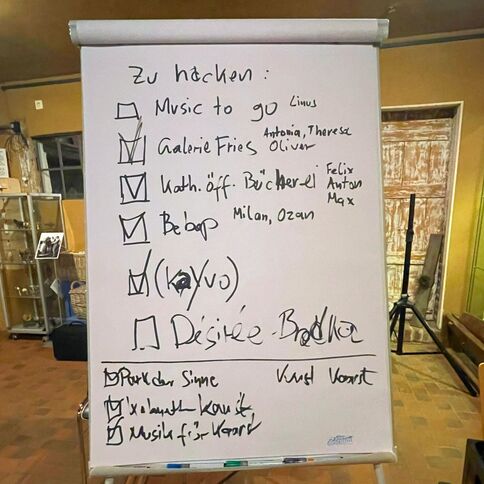 Zu hacken:
Music to go Linus
Galerie Fries Antonia, Theresa
Oliver
Kath. öff. Bücherei Felix
Anton
Max
Bebop Milan, Ozan
(Kayvo)
Désirée
Park der Sinne
Musik für